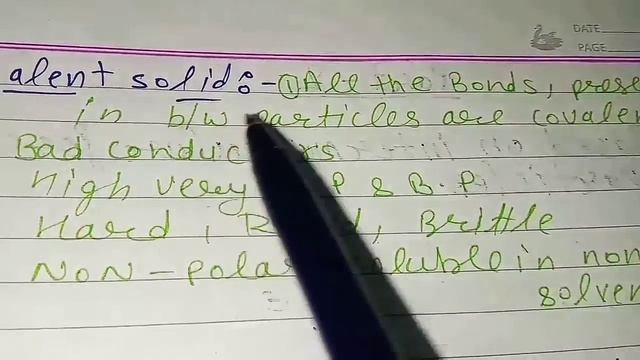 DATE
PAGE
alent solid:- ① All the Bonds, prese
in b/w particles are covalen
Bad conduc rs
High very P & B.P.
Hard, R d, Brittle
Non-polar luble in non
solven